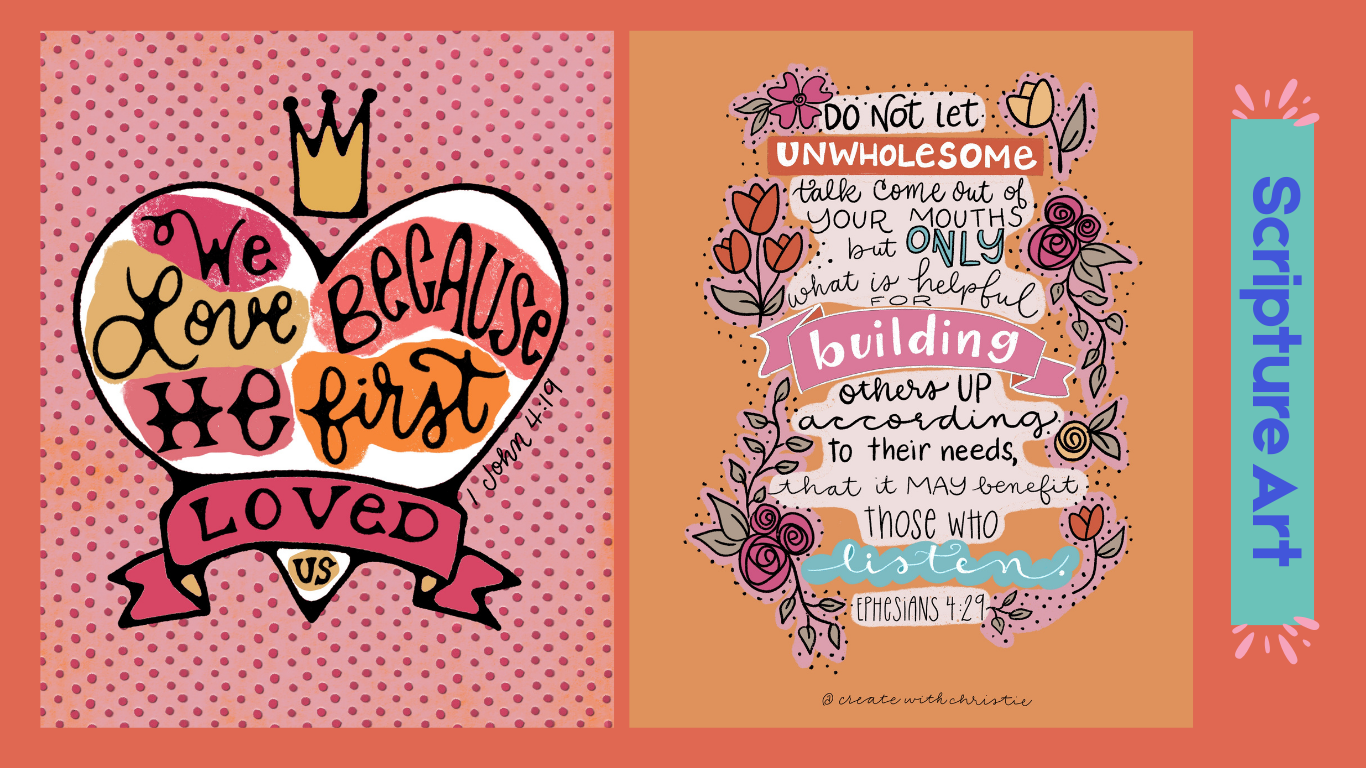 We
Love
He
BECAUSE
first
LOVED
US
1 John 4:19
DO NOT let
UNWHOLESOME
talk come out of
YOUR MOUTHS
but ONLY
what is helpful
FOR
building
others UP
according
to their needs,
that it MAY benefit
those who
listen.
EPHESIANS 4:29
@createwithchristie
Scripture Art